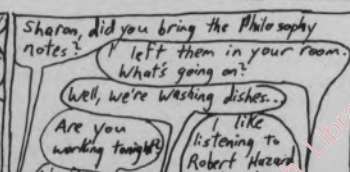 Sharon, did you bring the Philosophy
notes?
I left them in your room.
What's going on?
Well, we're washing dishes..
Are you
working tonight?
I like
listening to
Robert Hazard